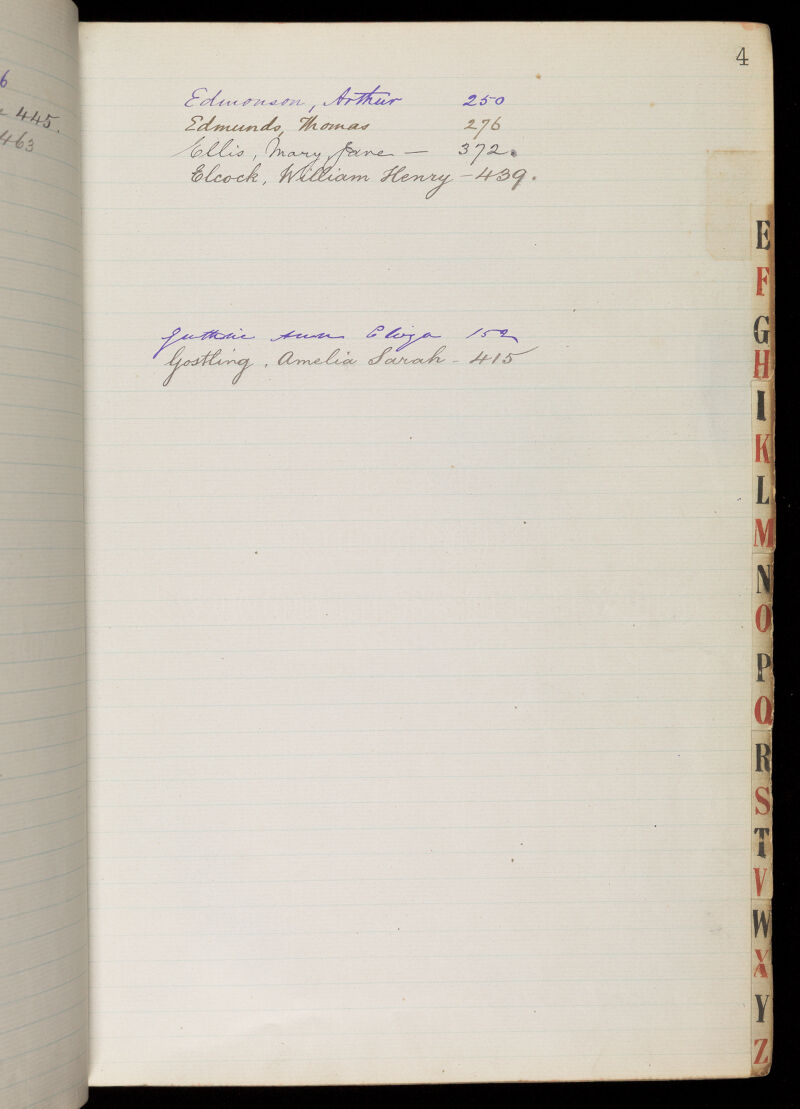 6
445.
463
4
Edmonson, Arthur 250
Edmunds, Thomas 276
Ellis, Mary Jane — 372.
Elcock, William Henry — 439.
Guthrie Ann Eliza 152
Gostling, Amelia Sarah - 415
E
F
G
H
I
K
L
M
N
O
P
Q
R
S
T
V
W
X
Y
Z